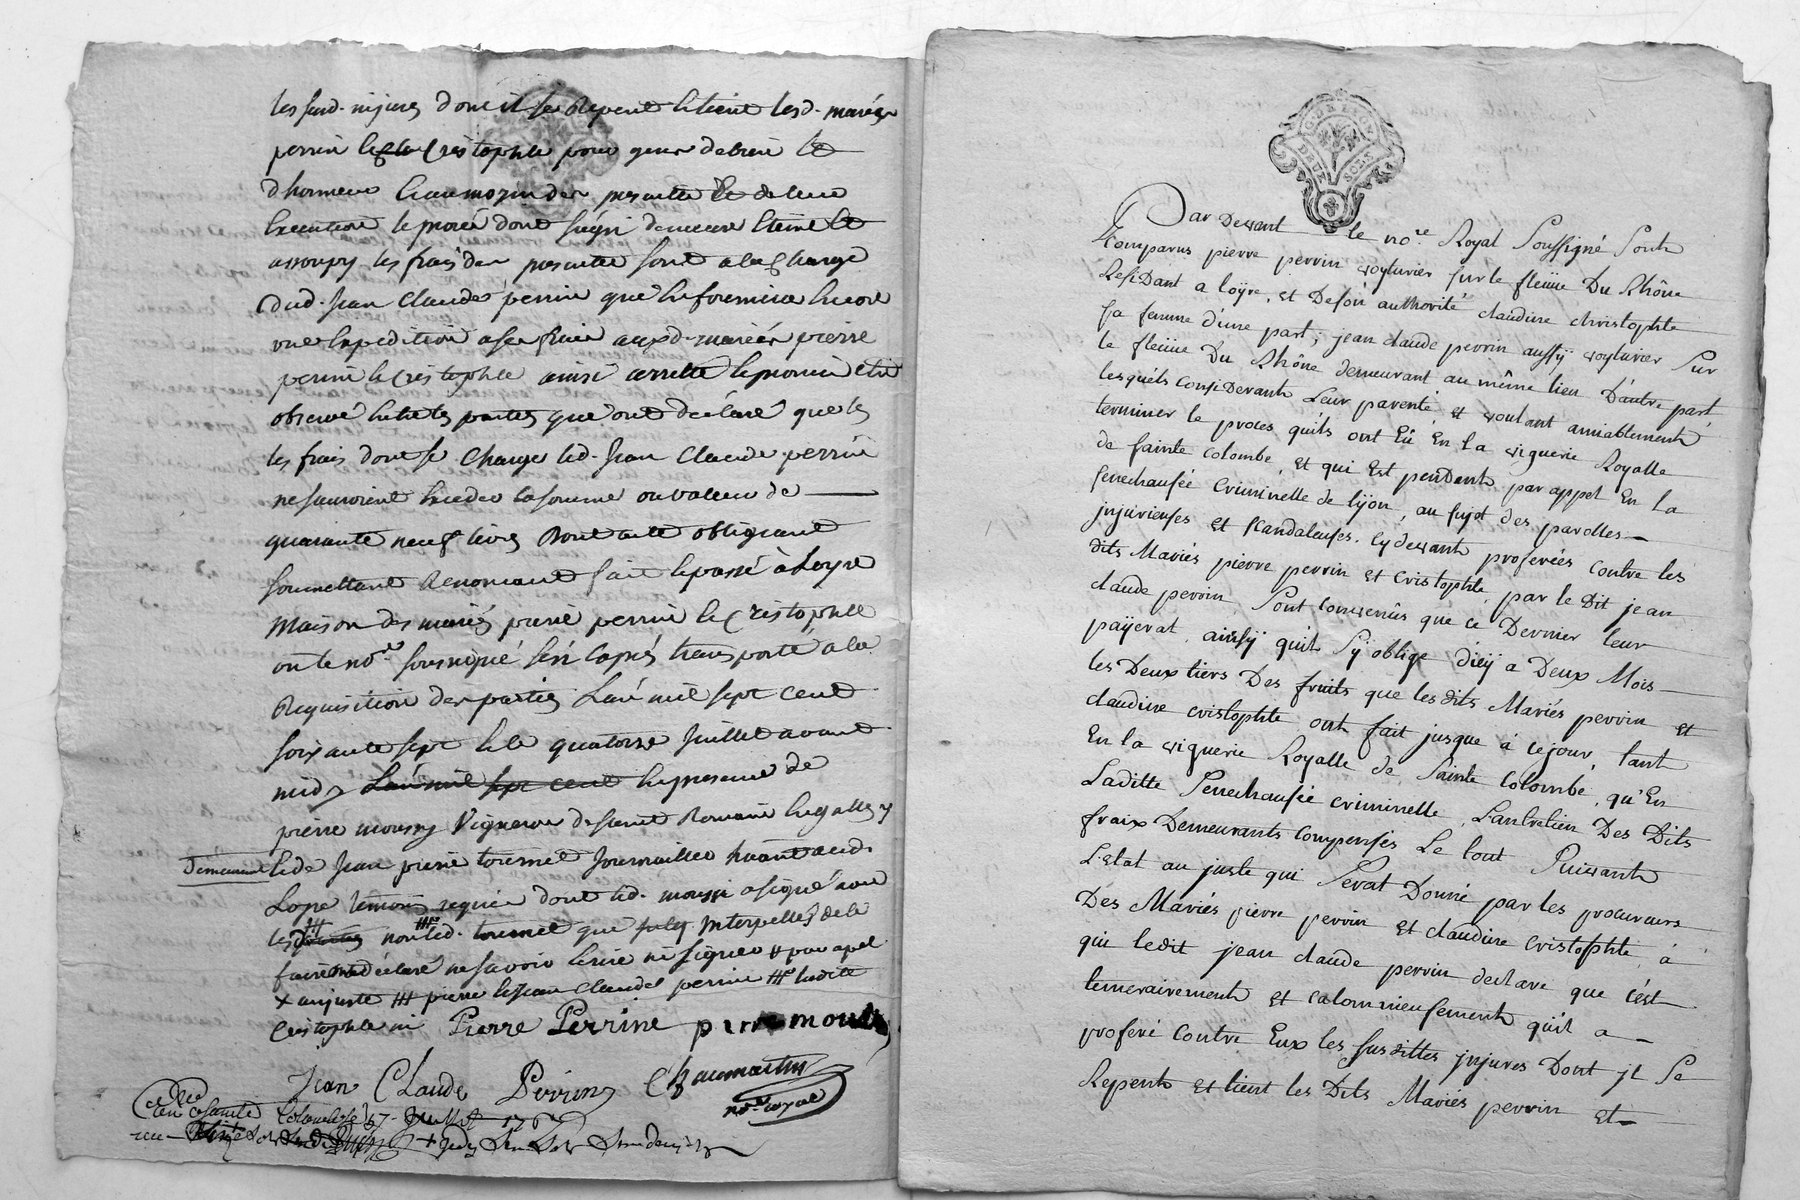 les susd. injures dont il se Repent et tient lesd. mariés
perrin et Cristophle pour gens de bien et
d'honneur Et au moyen des presentes et de leur
Execution le procé dont s'agit demeure Eteint et
assoupy les frais des presentes sont a la Charge
dud. Jean Claude perrin que en fournira Encore
une Expedition a ses frais auxd. mariés pierre
perrin et Cristophle ainsi arretté et promis Eté
observé Entre les parties que ont déclaré que les
les frais dont se Charge led. Jean Claude perrin
ne sauroient Exceder la somme ou valeur de
quarante neuf livres Dont acte obligeant
soumettant Renonceant fait et passé à Loyre
Maison des mariés pierre perrin et Cristophle
ou le no.re soussigné s'est Exprés transporté a la
Requisition des parties L'an mil sept cent
soixante sept et le quatorze Juillet avant
midy L'an mil sept cent En presence de
pierre moussy Vigneron de saint Romain en galles
et de Jean pierre tournet Journaillier
Demeurant
Loyre temoins requis dont led. moussi a signé avec
les parties non led. tournet que pour Interpellés de le
faire ont déclaré ne savoir Ecrire ni signer
au juste ### pierre et Jean Claude perrin ### ladite
Cristophle ni Pierre Perrine pierre mousi
Jean Claude Perrin Chaumartin
no.re royal
Sainte Colombe le 17 Juillet 1767
GN. DE LYON
DEUX SOLS
Par Devant le no.re Royal Soussigné Sont
Comparus pierre perrin voyturier sur le fleüve Du Rhône
Residant a loÿre, et De son authorité claudine christophle
sa femme d'une part; jean claude perrin aussÿ voyturier Sur
le fleüve Du Rhône demeurant au même lieu D'autre part,
lesquéls considerants Leur parenté et voulant amiablement
terminer le procès qu'ils ont Eü En la viguerie Royalle
de sainte colombe, Et qui Est pendant par appel En La
senechaussée criminelle de lÿon, au sujet des parolles
injurieuses Et scandaleuses cydevant proferées contre les
dits Mariés pierre perrin Et cristophle, par le Dit jean
claude perrin, Sont convenûs que ce Dernier leur
paÿerat, ainsÿ qu'il s'ÿ oblige d'icÿ a Deux Mois
les Deux tiers Des fraits que lesdits Mariés perrin et
claudine cristophle ont fait jusque à ce jour, tant
En la viguerie Royalle de Sainte Colombe, qu'En
Laditte Senechaussée criminelle, L'autre tien Des Dits
fraix Demeurants compensés Le tout Suivant
L'Etat au juste qui Serat Donné par les procureurs
Des Mariés pierre perrin et claudine cristophle, à
qui ledit jean claude perrin declare que c'est
temerairement Et calomnieusement qu'il a
proferé contre Eux les susdittes injures Dont jl Se
Repent Et tient les Dits Mariés perrin Et